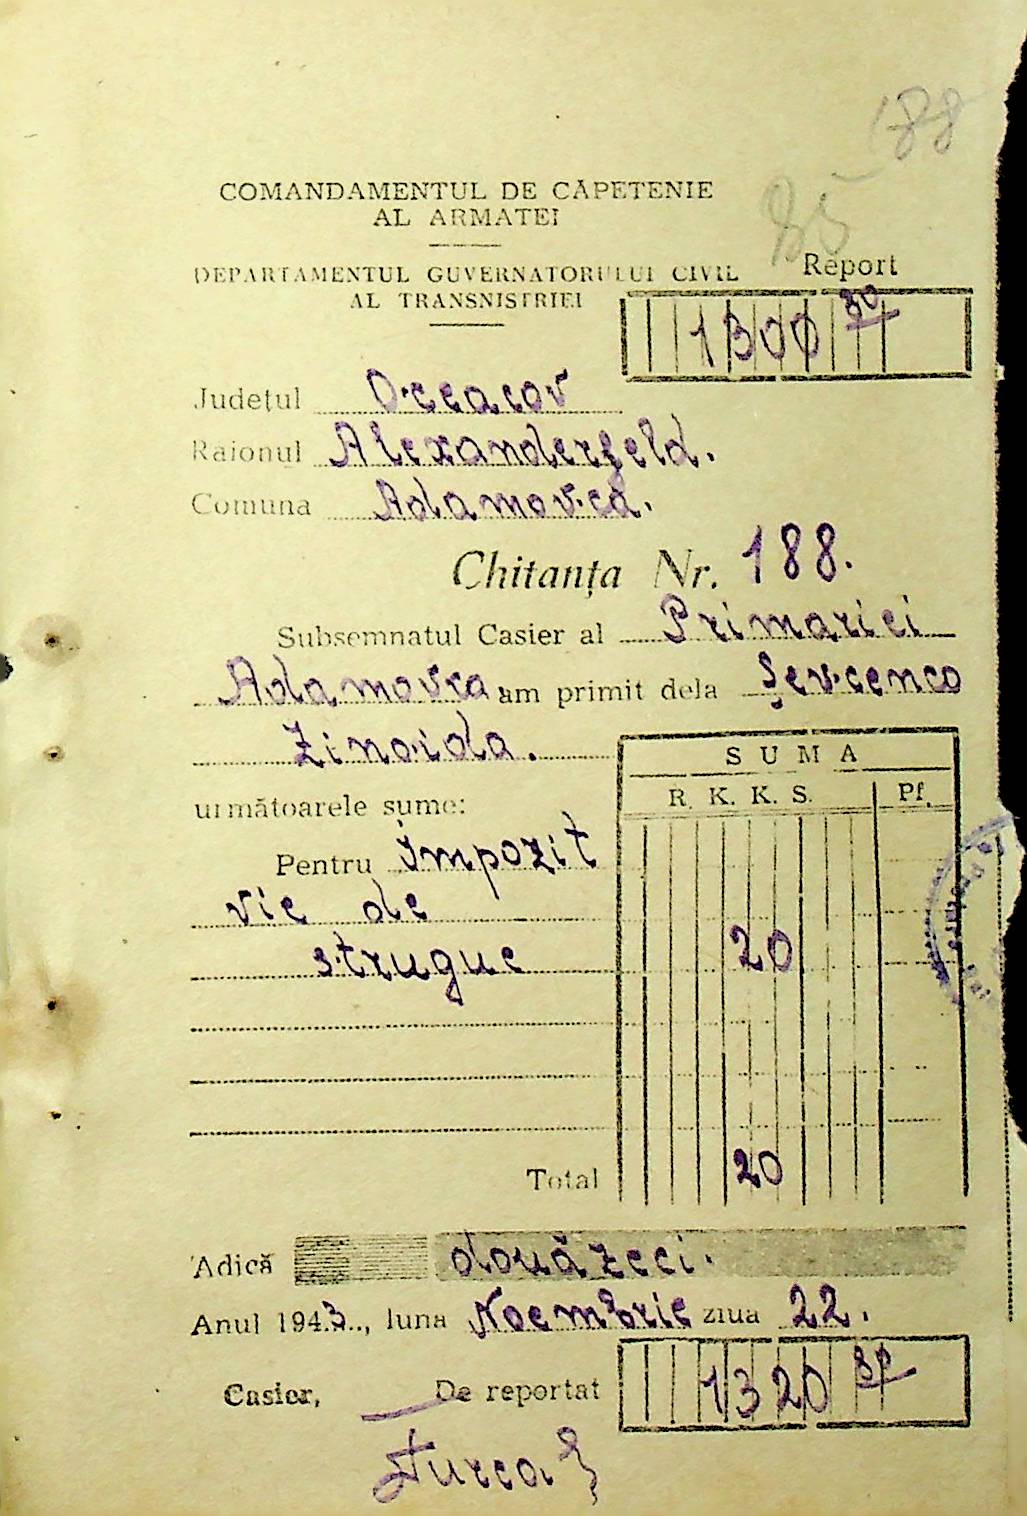 188
85
COMANDAMENTUL DE CĂPETENIE
AL ARMATEI
DEPARTAMENTUL GUVERNATORULUI CIVIL
AL TRANSNISTRIEI
Report
1300 80
Județul Oceacov
Raionul Alexanderfeld.
Comuna Adamovca.
Chitanța Nr. 188.
Subsemnatul Casier al Primariei
Adamovca am primit dela Șevcenco
Zinaida.
următoarele sume:
SUMA
R. K. K. S. Pf.
Pentru Impozit
vie de
strugue 20
Total 20
Adică douăzeci.
Anul 1943., luna Noembrie ziua 22.
Casier, De reportat 1320 80